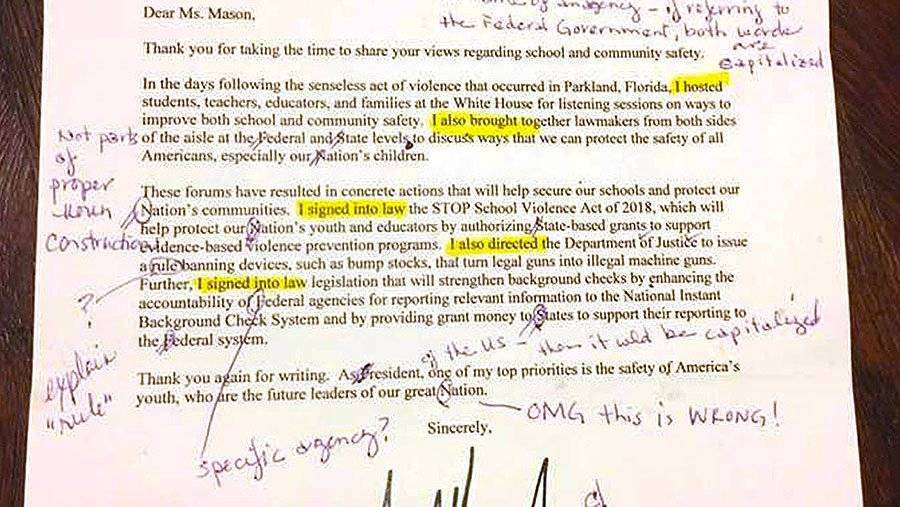 Dear Ms. Mason,
agency – if referring to
the Federal Government, both words
are
capitalized
Thank you for taking the time to share your views regarding school and community safety.
In the days following the senseless act of violence that occurred in Parkland, Florida, I hosted
students, teachers, educators, and families at the White House for listening sessions on ways to
improve both school and community safety. I also brought together lawmakers from both sides
of the aisle at the Federal and State levels to discuss ways that we can protect the safety of all
Americans, especially our Nation's children.
Not parts
of
proper
noun
construction
These forums have resulted in concrete actions that will help secure our schools and protect our
Nation's communities. I signed into law the STOP School Violence Act of 2018, which will
help protect our Nation's youth and educators by authorizing State-based grants to support
evidence-based violence prevention programs. I also directed the Department of Justice to issue
a rule banning devices, such as bump stocks, that turn legal guns into illegal machine guns.
Further, I signed into law legislation that will strengthen background checks by enhancing the
accountability of Federal agencies for reporting relevant information to the National Instant
Background Check System and by providing grant money to States to support their reporting to
the Federal system.
?
explain
"rule"
of the US – then it wld be capitalized
Thank you again for writing. As President, one of my top priorities is the safety of America's
youth, who are the future leaders of our great Nation.
OMG this is WRONG!
Sincerely,
specific agency?